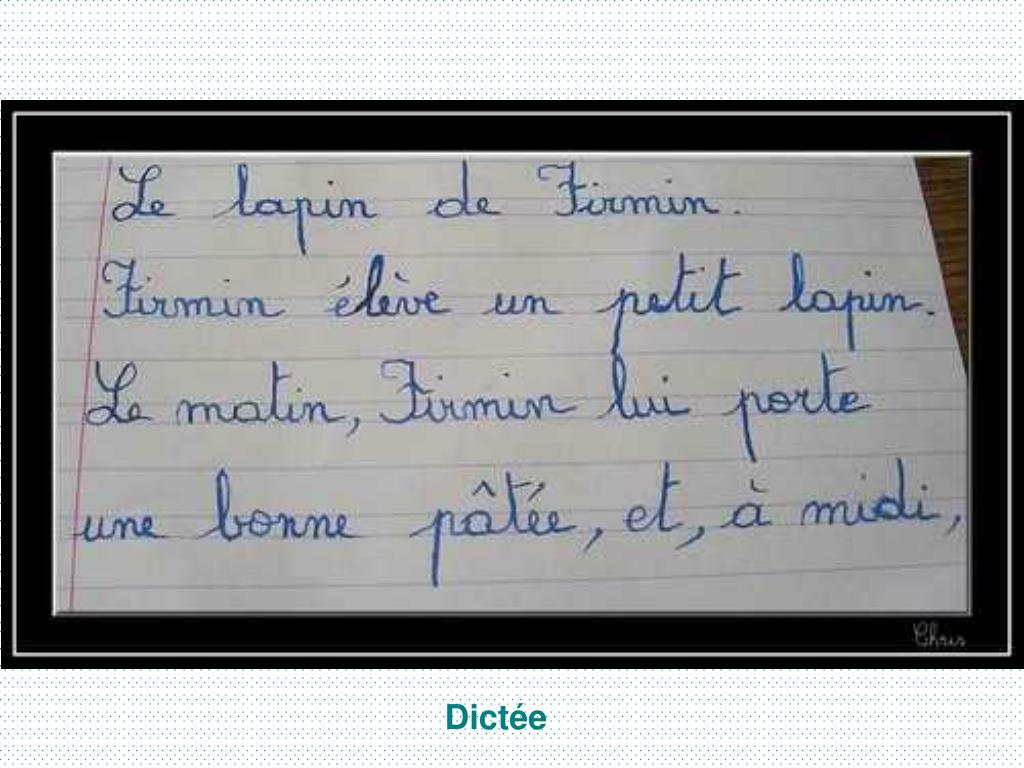 Le lapin de Firmin.
Firmin élève un petit lapin.
Le matin, Firmin lui porte
une bonne pâtée, et, à midi,
Chris
Dictée